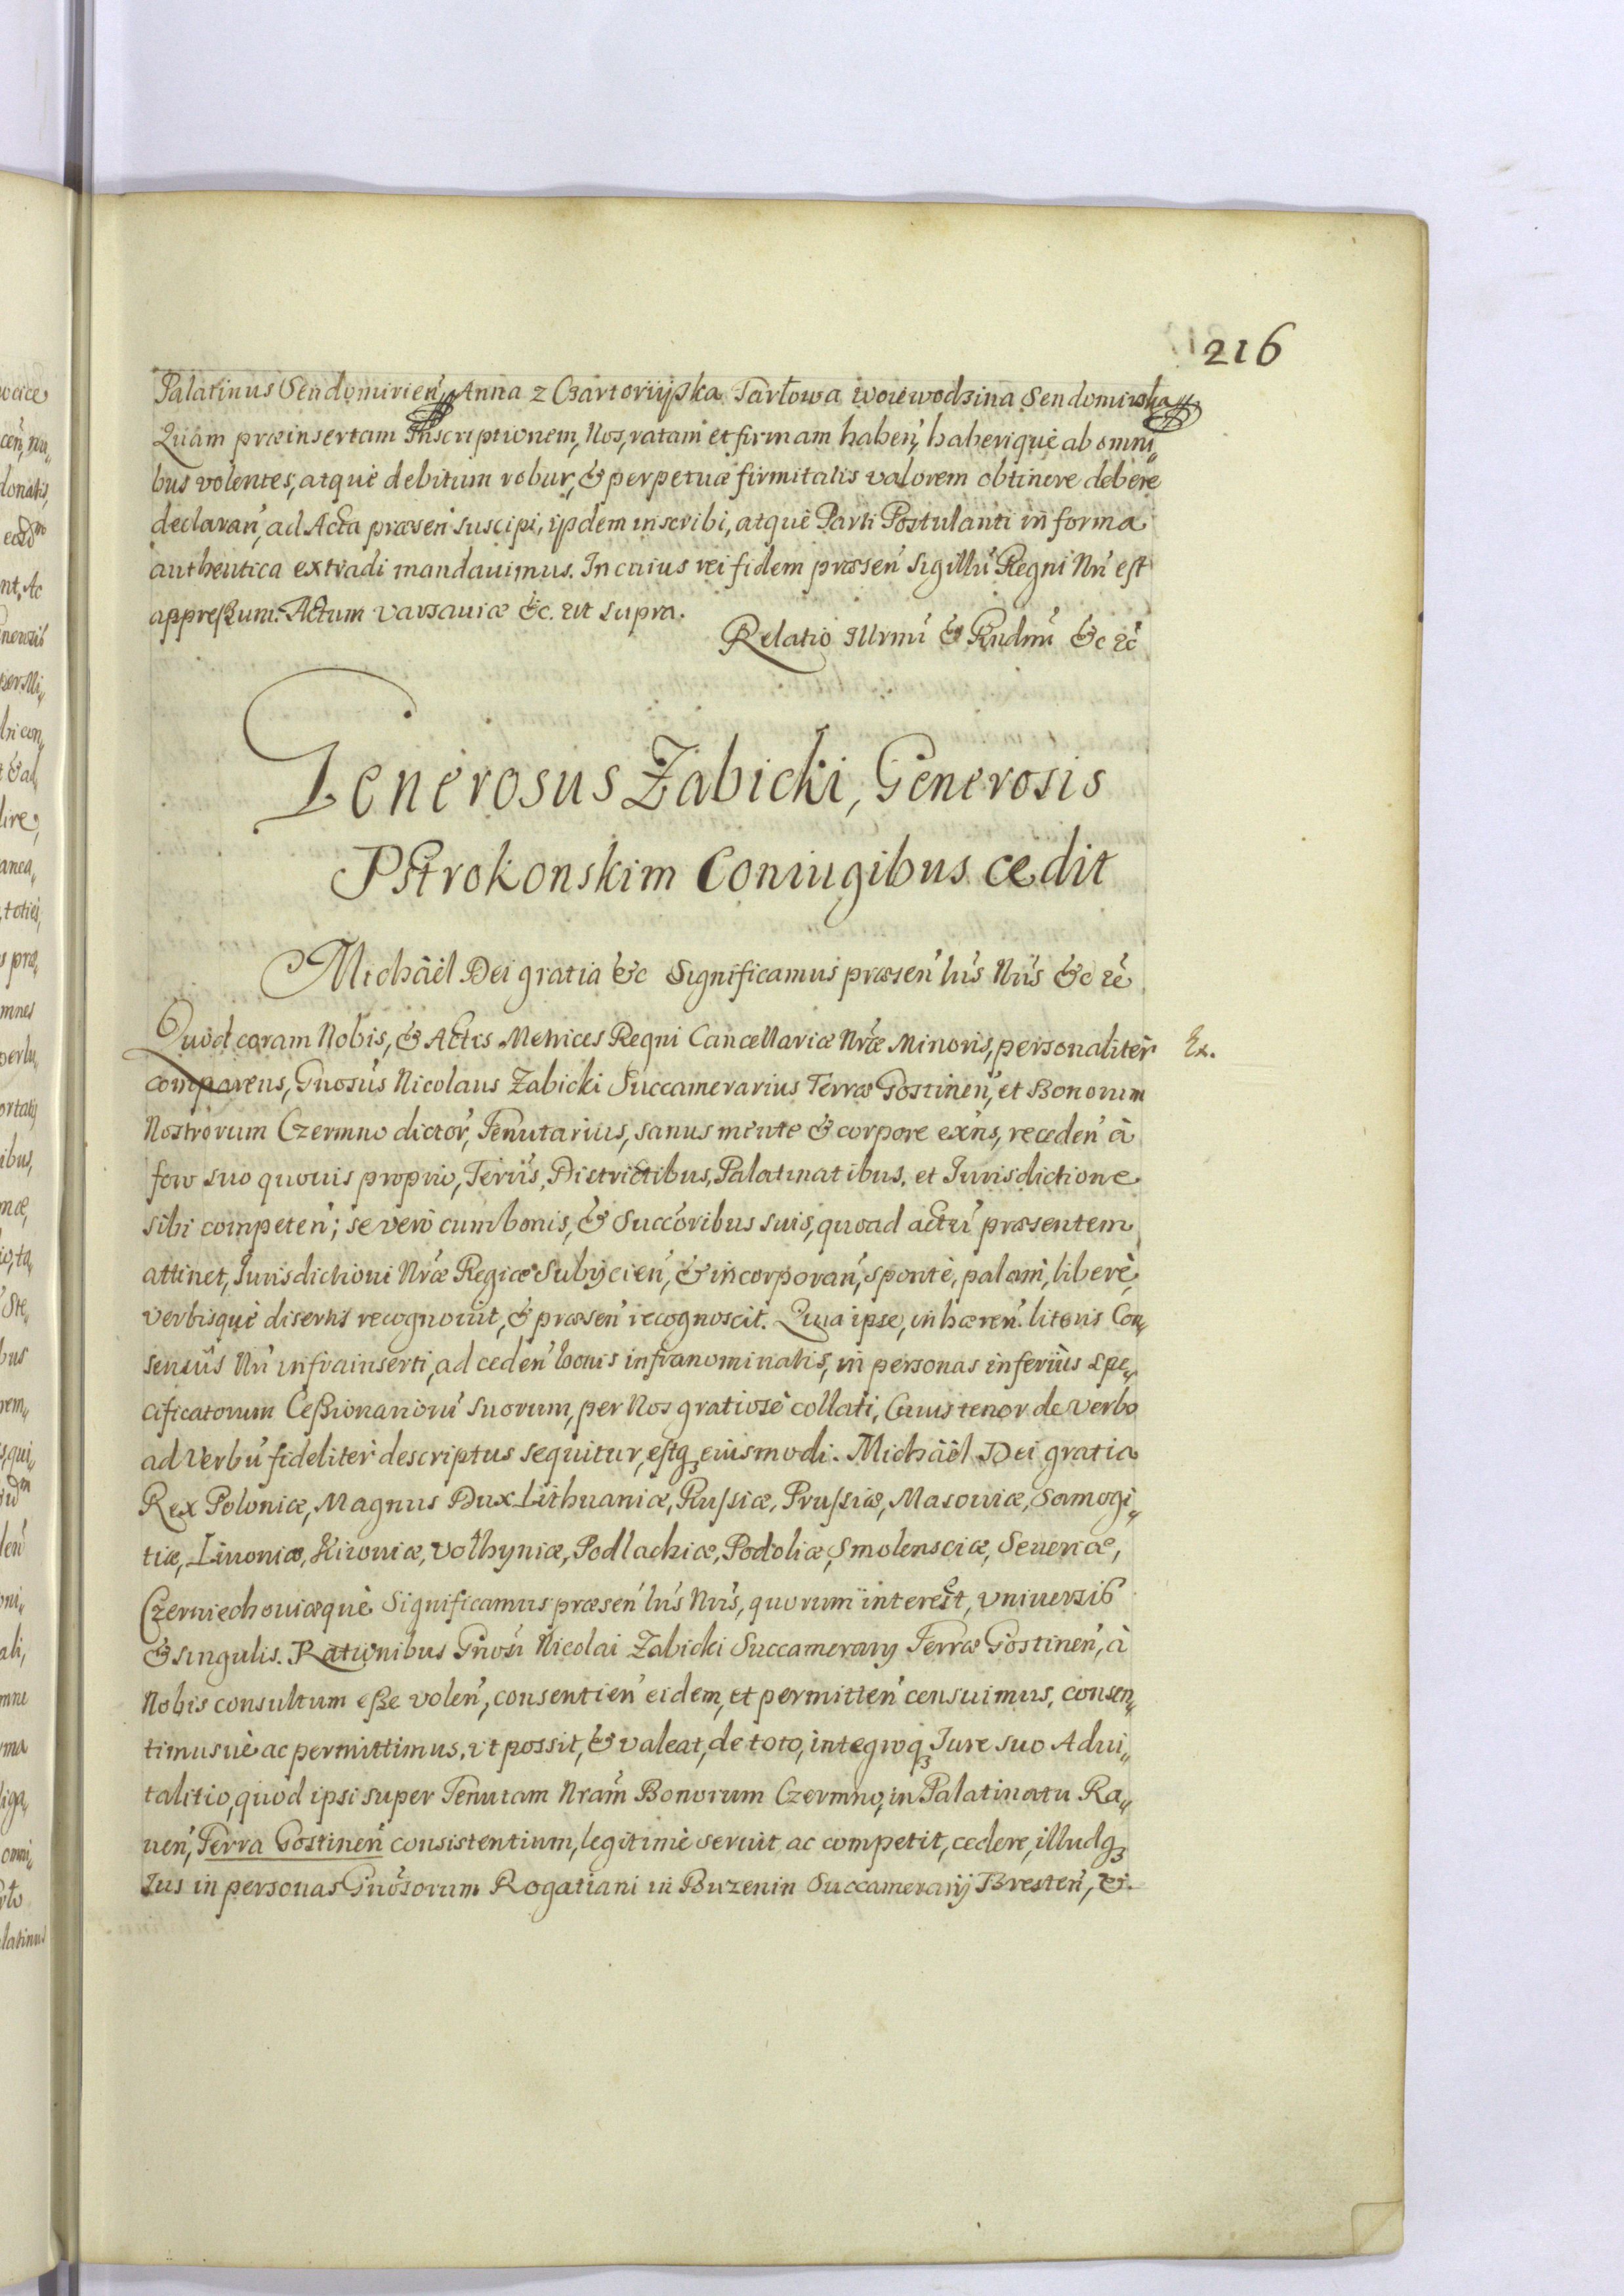 216
Palatinus Sendomirien̄, Anna z Czartoryiska Tarłowa woiewodzina Sendomirska
Quam præinsertam Inscriptionem, Nos, ratam et firmam haben̄, haberiquè ab omni„
bus volentes, atquè debitum robur, & perpetuæ firmitatis valorem obtinere debere
declaran̄, ad Acta præsen̄ suscipi, ijsdem inscribi, atquè Parti Postulanti in forma
authentica extradi mandauimus. In cuius rei fidem præsen̄ Sigillū Regni Nrī est
appreßum. Actum Varsauiæ &c. ut supra.
Relatio Illrmī & Rndmī &c &c̄
Generosus Zabicki, Generosis
PStrokonskim Coniugibus cedit
Michäel Dei gratia &c Significamus præsen̄ lrīs Nrīs &c &c̄
Quod coram Nobis, & Actis Metrices Regni Cancellariæ Nrǣ Minoris, personalitèr
Ex.
comparens, Gnosūs Nicolaus Zabicki Succamerarius Terræ Gostinen̄, et Bonorum
Nostrorum Czermno dictor̄, Tenutarius, sanus mente & corpore exn̄s, receden̄ à
foro suo quouis proprio, Terrīs, Districtibus, Palatinatibus, et Jurisdictione
sibi competen̄; se verò cum bonis, & Succōribus suis, quoad actū præsentem
attinet, Jurisdictioni Nrǣ Regiæ Subijcien̄, & incorporan̄, spontè, palàm, liberè,
verbisquè disertis recognouit, & præsen̄ recognoscit. Quia ipse, inhæren̄ literis Con„
sensūs Nrī infrainserti, ad ceden̄ bonis infranominatis, in personas inferiùs spe„
cificatorum Ceßionariorū suorum, per Nos gratiosè collati, Cuius tenor de verbo
ad Verbū fidelitèr descriptus sequitur, estq3 eiusmodi. Michäel Dei gratia
Rex Poloniæ, Magnus Dux Lithuaniæ, Russiæ, Prussiæ, Masouiæ, Samogi„
tiæ, Liuoniæ, Kiouiæ, Volhyniæ, Podlachiæ, Podoliæ, Smolensciæ, Seueriæ,
Czerniechouiæquè Significamus præsen̄ lrīs Nrīs, quorum interest, vniuersis
& singulis. Rationibus Gnosī Nicolai Zabicki Succamerarij Terræ Gostinen̄, à
Nobis consultum eße volen̄, consentien̄ eidem, et permitten̄ censuimus, consen„
timusuè ac permittimus, vt possit, & valeat, de toto, integroq3 Jure suo Adui„
talitio, quod ipsi super Tenutam Nram̄ Bonorum Czermno, in Palatinatu Ra„
uen̄, Terra Gostinen̄ consistentium, legitimè seruit ac competit, cedere, illudq3
Ius in personas Gnosorum Rogatiani in Buzenin Succamerarij Bresten̄, &